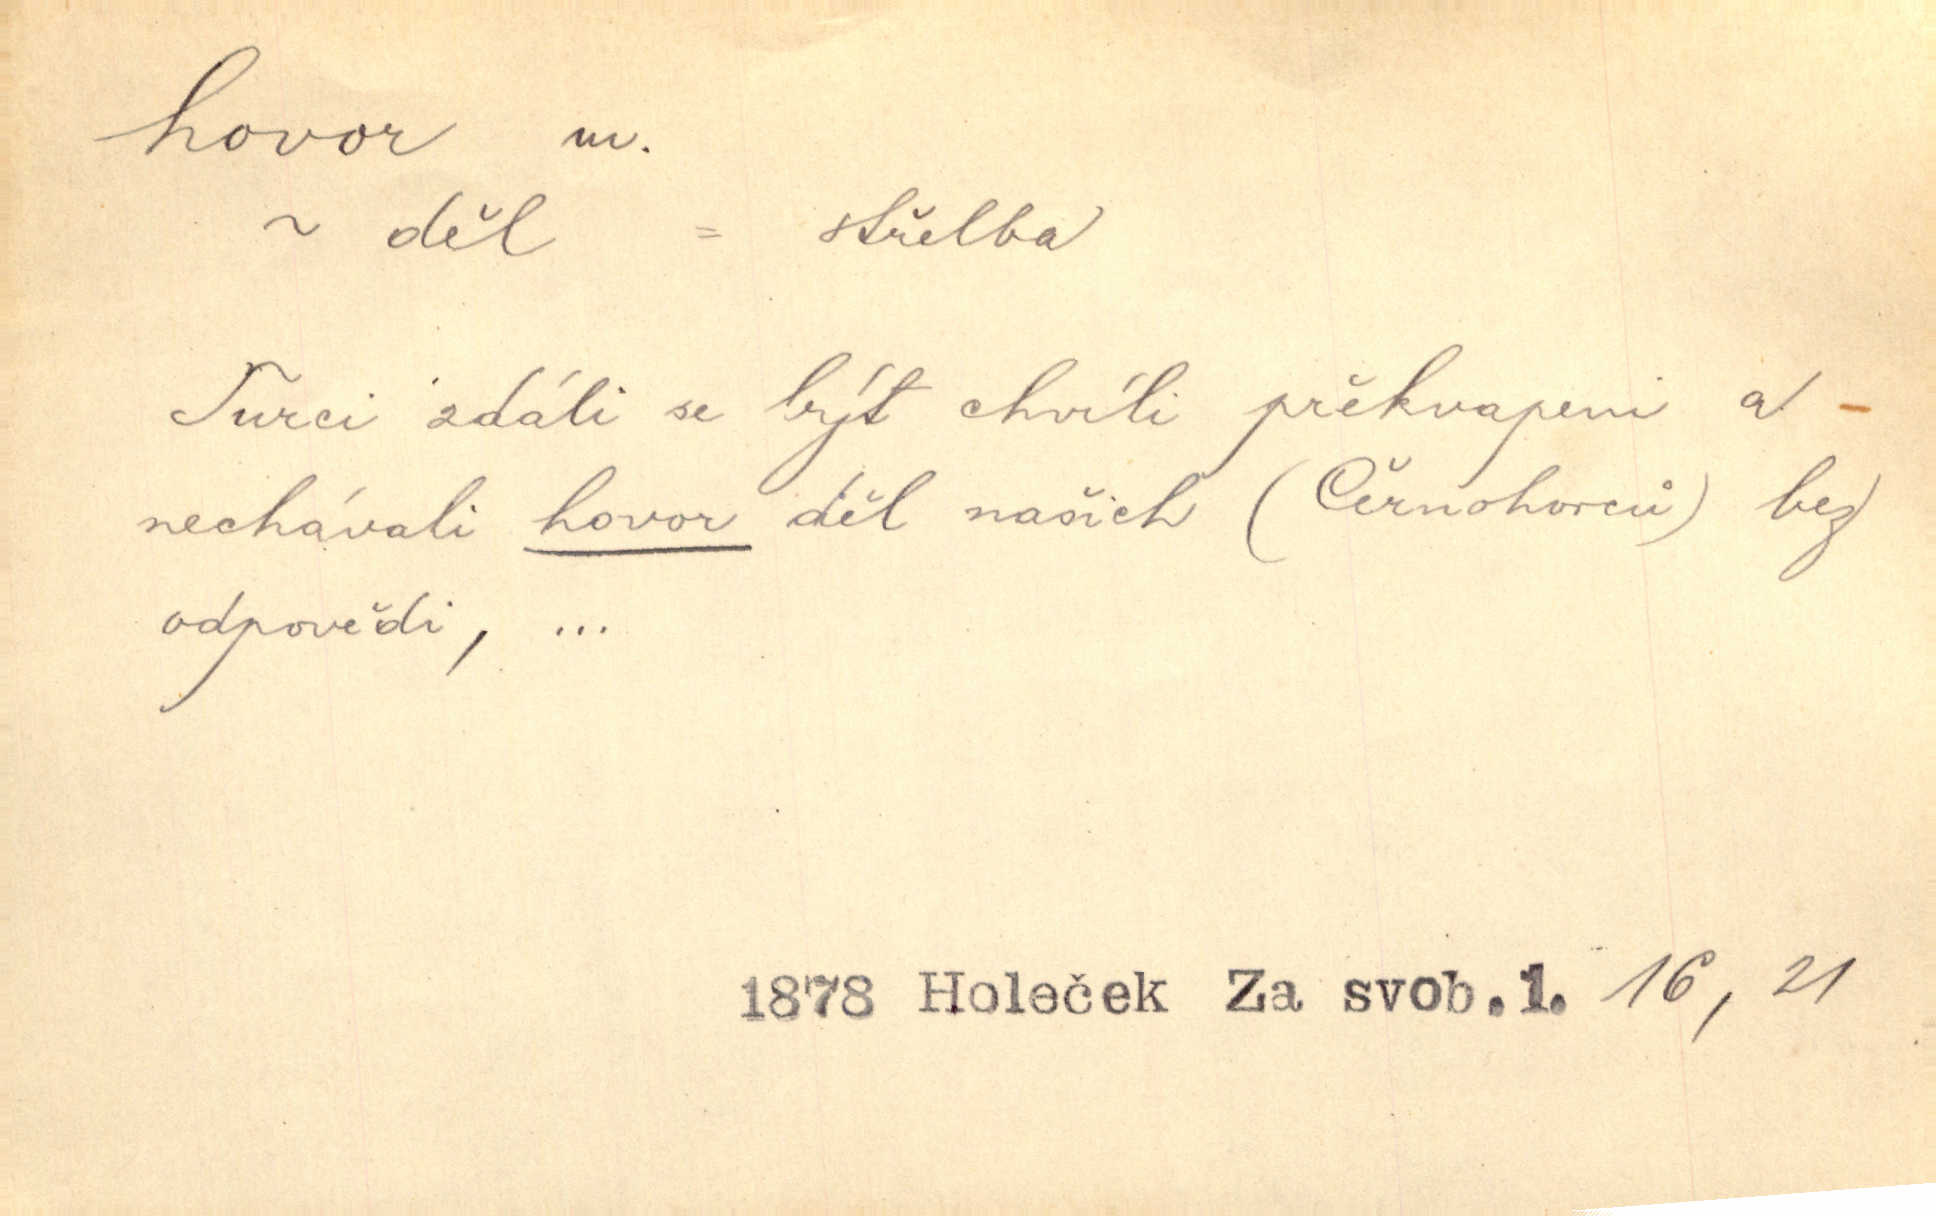 hovor m.
~ děl = střelba
Turci zdáli se být chvíli překvapeni a -
nechávali hovor děl našich (Černohorců) bez
odpovědi, ...
1878 Holeček Za svob.1. 16, 21